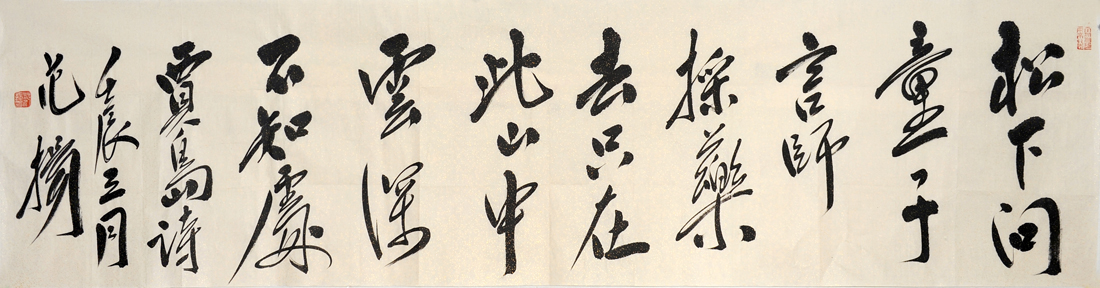 松下问
童子
言師
採藥
去只在
此山中
雲深
不知處
賈島詩
壬辰三月
范揚